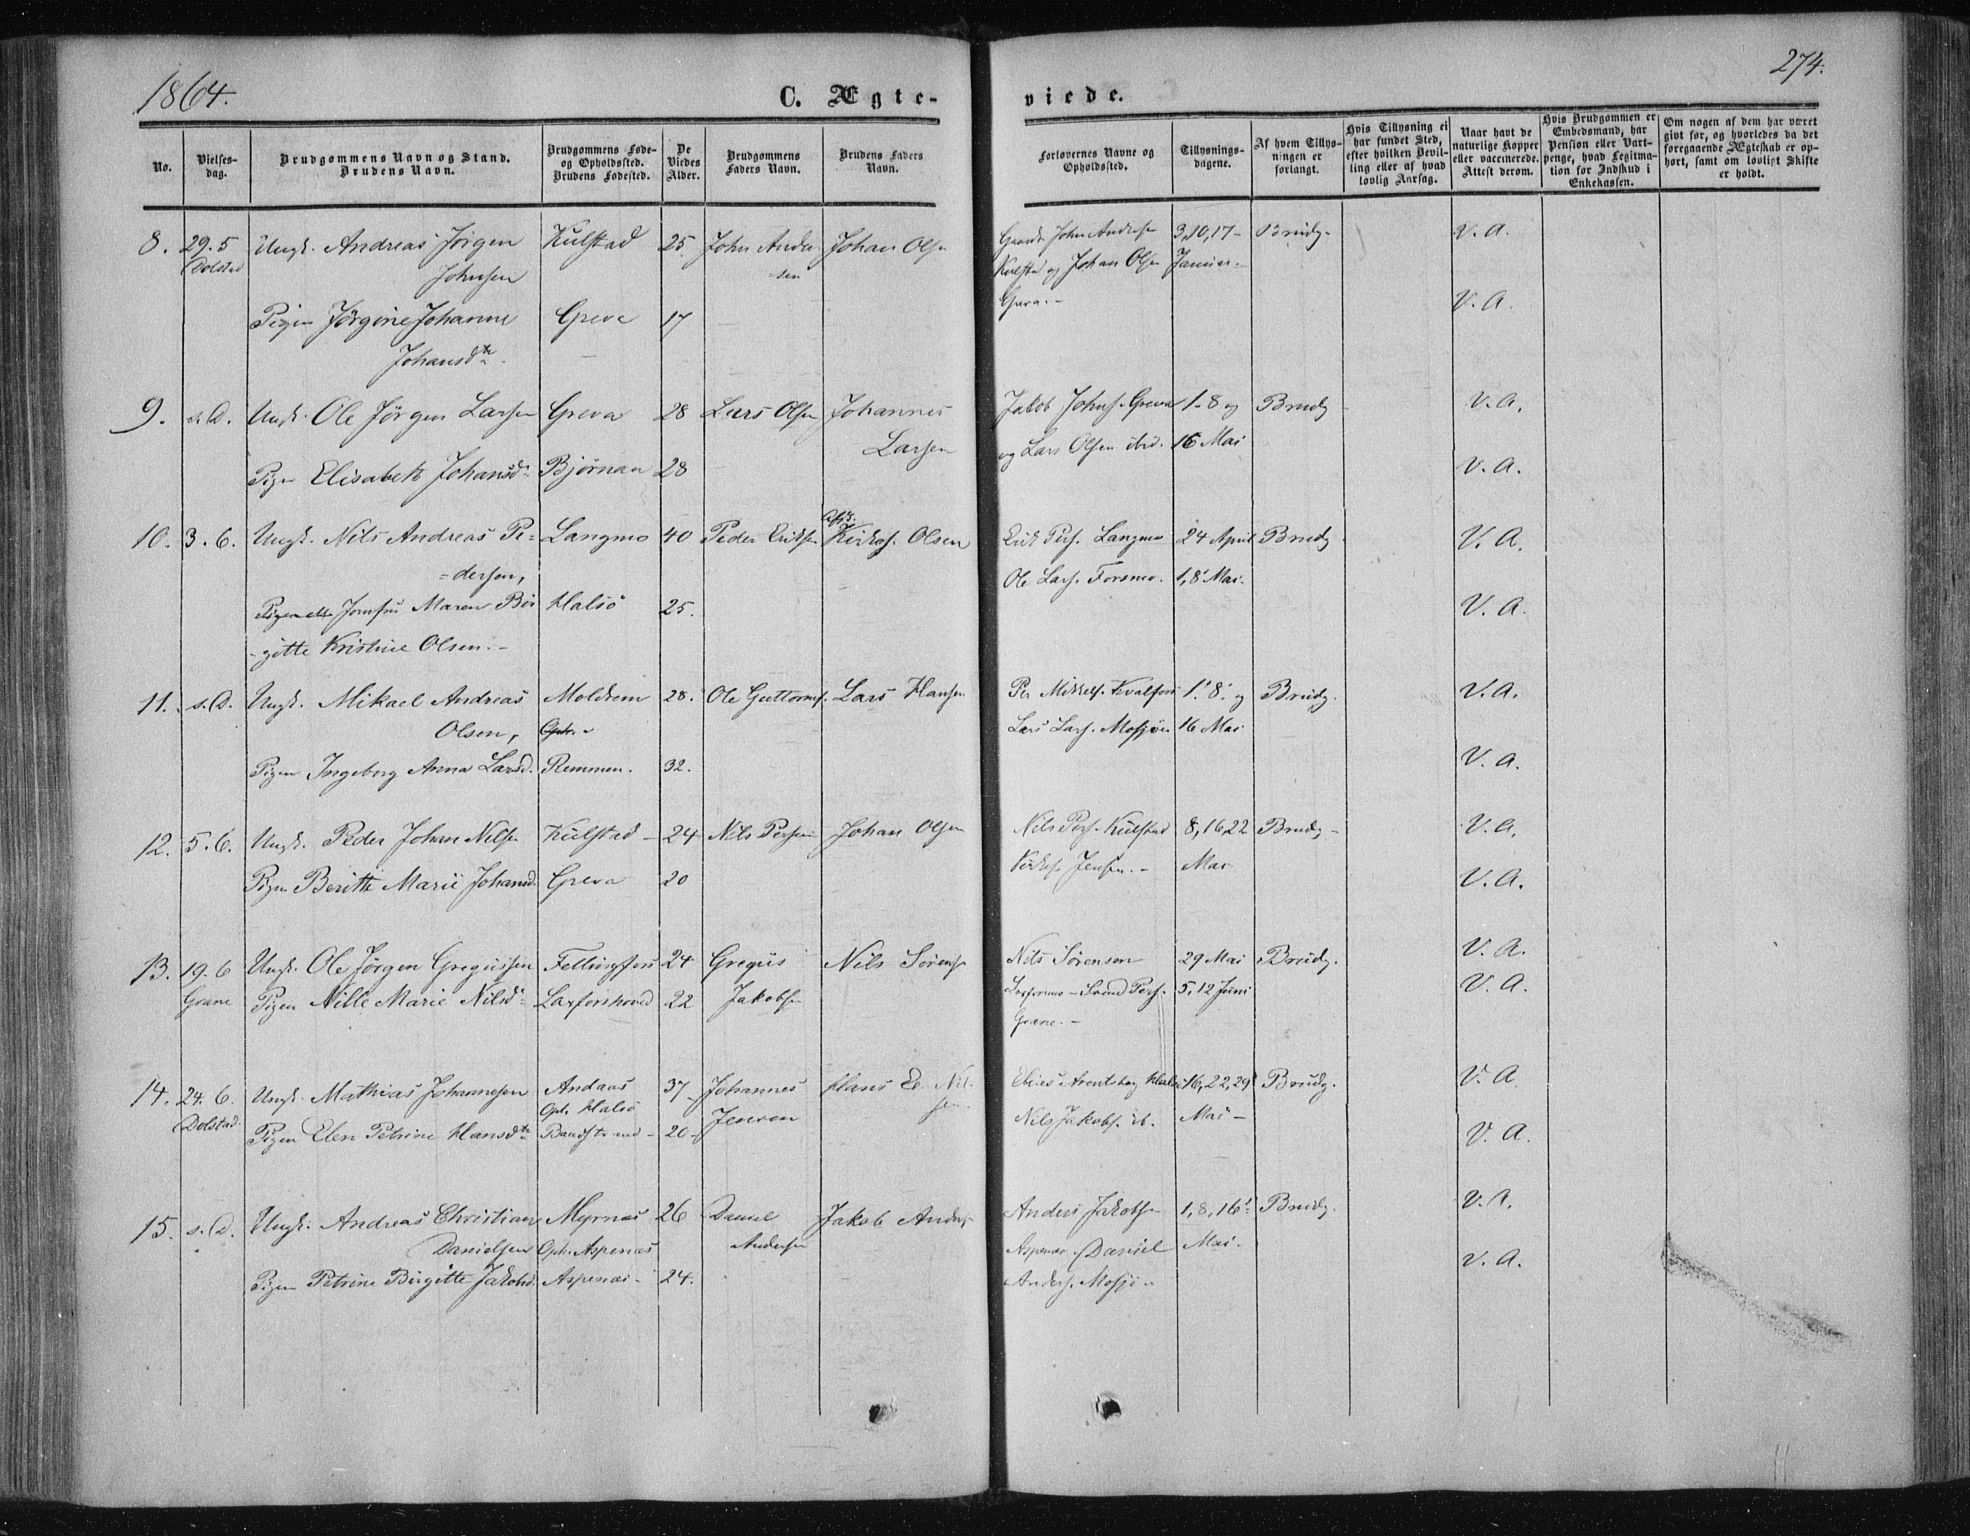 1864.
C. Ægte-
viede.
274.
No.
Vielses-
dag.
Brudgommens Navn og Stand.
Brudens Navn.
Brudgommens Føde-
og Opholdssted.
Brudens Fødested.
De
Viedes
Alder.
Brudgommens
Faders Navn.
Brudens Faders
Navn.
Forlovernes Navne og
Opholdssted.
Tillysnings-
dagene.
Af hvem Tillys-
ningen er
forlangt.
Hvis Tillysning ei
har fundet Sted,
efter hvilken Bevil-
ling eller af hvad
lovlig Aarsag.
Naar havt de
naturlige Kopper
eller vaccinerede.
Attest derom.
Hvis Brudgommen er
Embedsmand, har
Pension eller Vart-
penge, hvad Legitima-
tion for Indskud i
Enkekassen.
Om nogen af dem har været
givt før, og hvorledes da det
foregaaende Ægteskab er op-
hørt, samt om lovligt Skifte
er holdt.
8. 29.5 Ungk. Andreas Jørgen Kulstad 25. John Ander Johan Olsen John Andersen 3,10,17- Brudg. V. A.
Dolstad Johnsen sen Kulsta og Johan Olsen Januar.
Greva.- V. A.
Pigen Jørgine Johanne Greva 17
Johansdtr.
9. s.D. Ungk. Ole Jørgen Larsen Greva 28 Lars Olsen Johannes Jakob Johns. Greva 1-8 og Brudg V. A.
Larsen og Lars Olsen ibid. 16 Mai
Pigen Elisabeth Johansd. Bjørnaa 28 V. A.
10. 3.6. Ungk. Nils Andreas Pe- Langmo 40 Peder Eriksen Kirks. Olsen Erik Pers. Langmo 24 April Brudg. V. A.
=dersen, Ole Lars. Forsmo. 1,8 Mai.
Jomfru Maren Bir Halsø 25. V. A.
-gitte Kristine Olsen.-
11. s.D. Ungk. Mikael Andreas Moldrem 28. Ole Guttorms. Lars Hansen Per Mikkels. Kvalfors 1. 8. og Brudg. V. A.
Olsen, Lars Lars. Mosjøen 16 Mai
Pigen Ingeborg Anna Larsd. Remmen. 32. V. A.
12. 5.6. Ungk. Peder Johan Nilsen Kulstad- 24 Nils Persen Johan Olsen Nils Pers. Kulstad 8,16,22 Brudg- V. A.
Kirks. Jensen.- Mai
Pigen Berith Marie Johansd. Greva 20 V. A.
13. 19.6 Ungk. Ole Jørgen Gregussen Fellingfors 24 Gregus Nils Sørens. Nils Sørensen 29 Mai Brudg. V. A.
Grane Pigen Nille Marie Nilsd. Laxforshoved 22 Jakobsen Svend Pers. 5,12 Juni V. A.
Grane.-
14. 24.6. Ungk. Mathias Johannesen Andaas 37- Johannes Hans E. Nil- Elias Arontsberg Halsø 16,22,29 Brudg. V. A.
Dolstad. Oph. Halsø Jensen sen. Nils Jakobs. ib. Mai-
Pigen Elen Petrine Hansdtr. Baadstrand- 20- V. A.
15. s.D. Ungk. Andreas Christian Myrnes 26 Daniel Jakob Anders. Anders Jakobsen 1,8,16 Brudg. V. A.
Danielsen Oph. Aspenæs Andersen Aspenæs. Daniel Mai.
Pigen Petrine Birgitte Jakobsd. Aspenæs- 24. Anders. Mosjø- V. A.